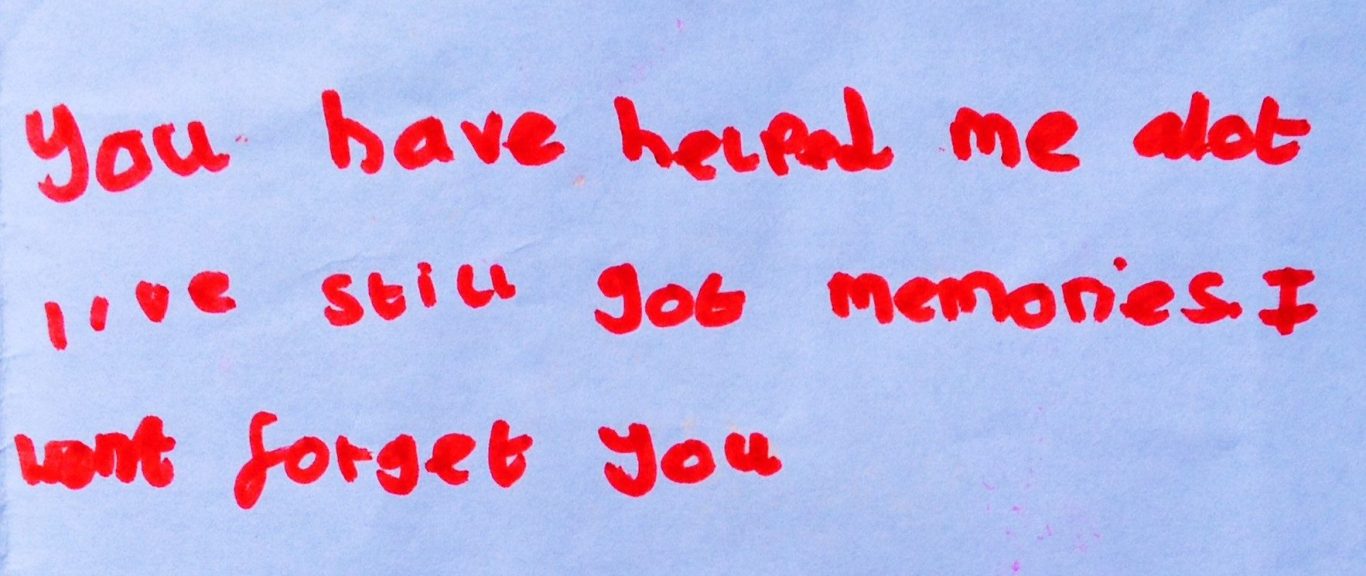 You have helped me alot
I've still got memories. I
wont forget you